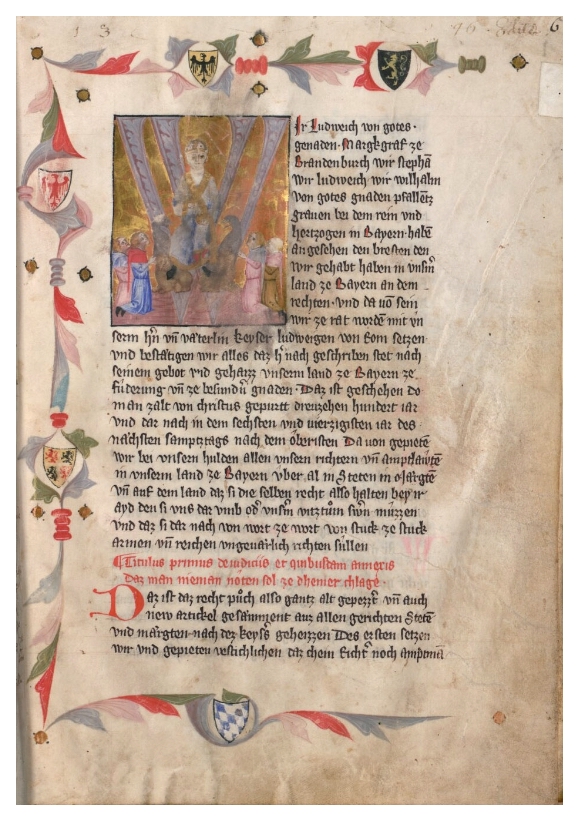 6
Ir Ludweich von gotes
genaden Margkgraf ze
Brandenburch wir stephā
wir ludweich wir wilhalm
von gotes gnaden pfallētz
grauen bei dem rein vnd
hertzogen in Bayern habē
an gesehen den bresten den
wir gehabt haben in vnsm
land ze Bayern an dem
rechten vnd da vō sein
wir ze rat wordē mit vn
serm hn vn vaterlin keyser ludweigen von Rom setzen
vnd bestätigen wir alles daz h nach geschriben stet nach
seinem gebot vnd gehaizz vnserm land ze Bayern ze
füderung vn ze besund gnaden Daz ist geschehen do
man zalt von christus gepurtt dreuzehen hundert iar
vnd dar nach in dem sechsten vnd vierzigisten iar des
nachsten sampztags nach dem öbersten Da uon gepietē
wir bei vnsern hulden allen vnsern richtern vn amptläutē
in vnserm land ze Bayern vber al in Steten in Märgtē
vn auf dem land daz si die selben recht also halten bey ir
ayd den si vns dar vmb od vnsm vitztum swn müzzen
vnd daz si dar nach von wort ze wort von stuck ze stuck
armen vn reichen vngeuärlich richten süllen
Titulus primus de iudiciis et quibusdam annexis
Daz man nieman nöten sol ze dhenier chlage
Daz ist daz recht püch also gantz alt gepezzt vn auch
new artickel gesampnent auz allen gerichten Stetē
vnd märgten nach dez keyss gehaizzen Des ersten setzen
wir vnd gepieten vestichlichen daz chein Richt noch amptman